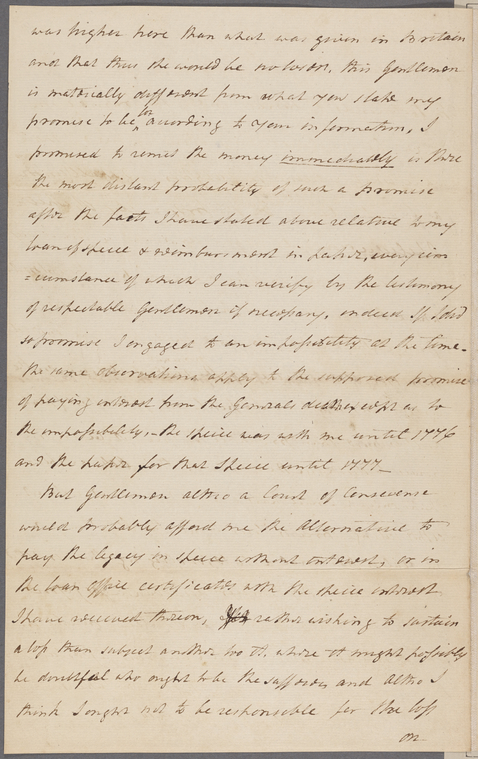 was higher here than what was given in Britain
and that thus she would be no loser, this Gentlemen
is materially different from what you state my
promise to be, for according to your information, I
promised to remit the money immediately is there
the most distant probability of such a promise
after the facts I have stated above relative to my
loan of specie & reimbursement in paper, every cir
=cumstance of which I can verify by the testimony
of respectable Gentlemen if necessary, indeed if I did
so promise I engaged to an impossibility at the time -
the same observations apply to the supposed promise
of paying interest from the Generals death except as to
the impossibility, - the specie was with me until 1776
and the paper for that Specie until 1777 -
But Gentlemen altho a Court of Conscience
would probably afford me the Alternative to
pay the legacy in specie without interest, or in
the loan Office certificates with the specie interest
I have received thereon, yet rather wishing to sustain
a loss than subject another to it, where it might possibly
be doubtful who ought to be the sufferer, and altho I
think I ought not to be responsible for the loss
on